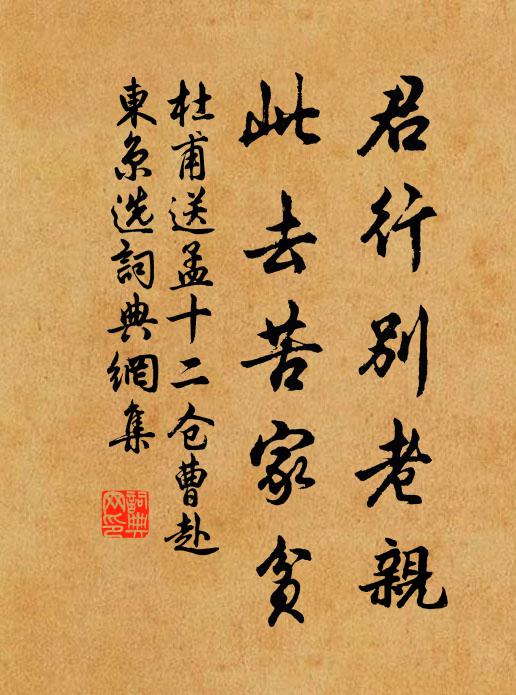 君行别老親
此去苦家貧
杜甫送孟十二仓曹赴
東京选詞典網集
詞典网印